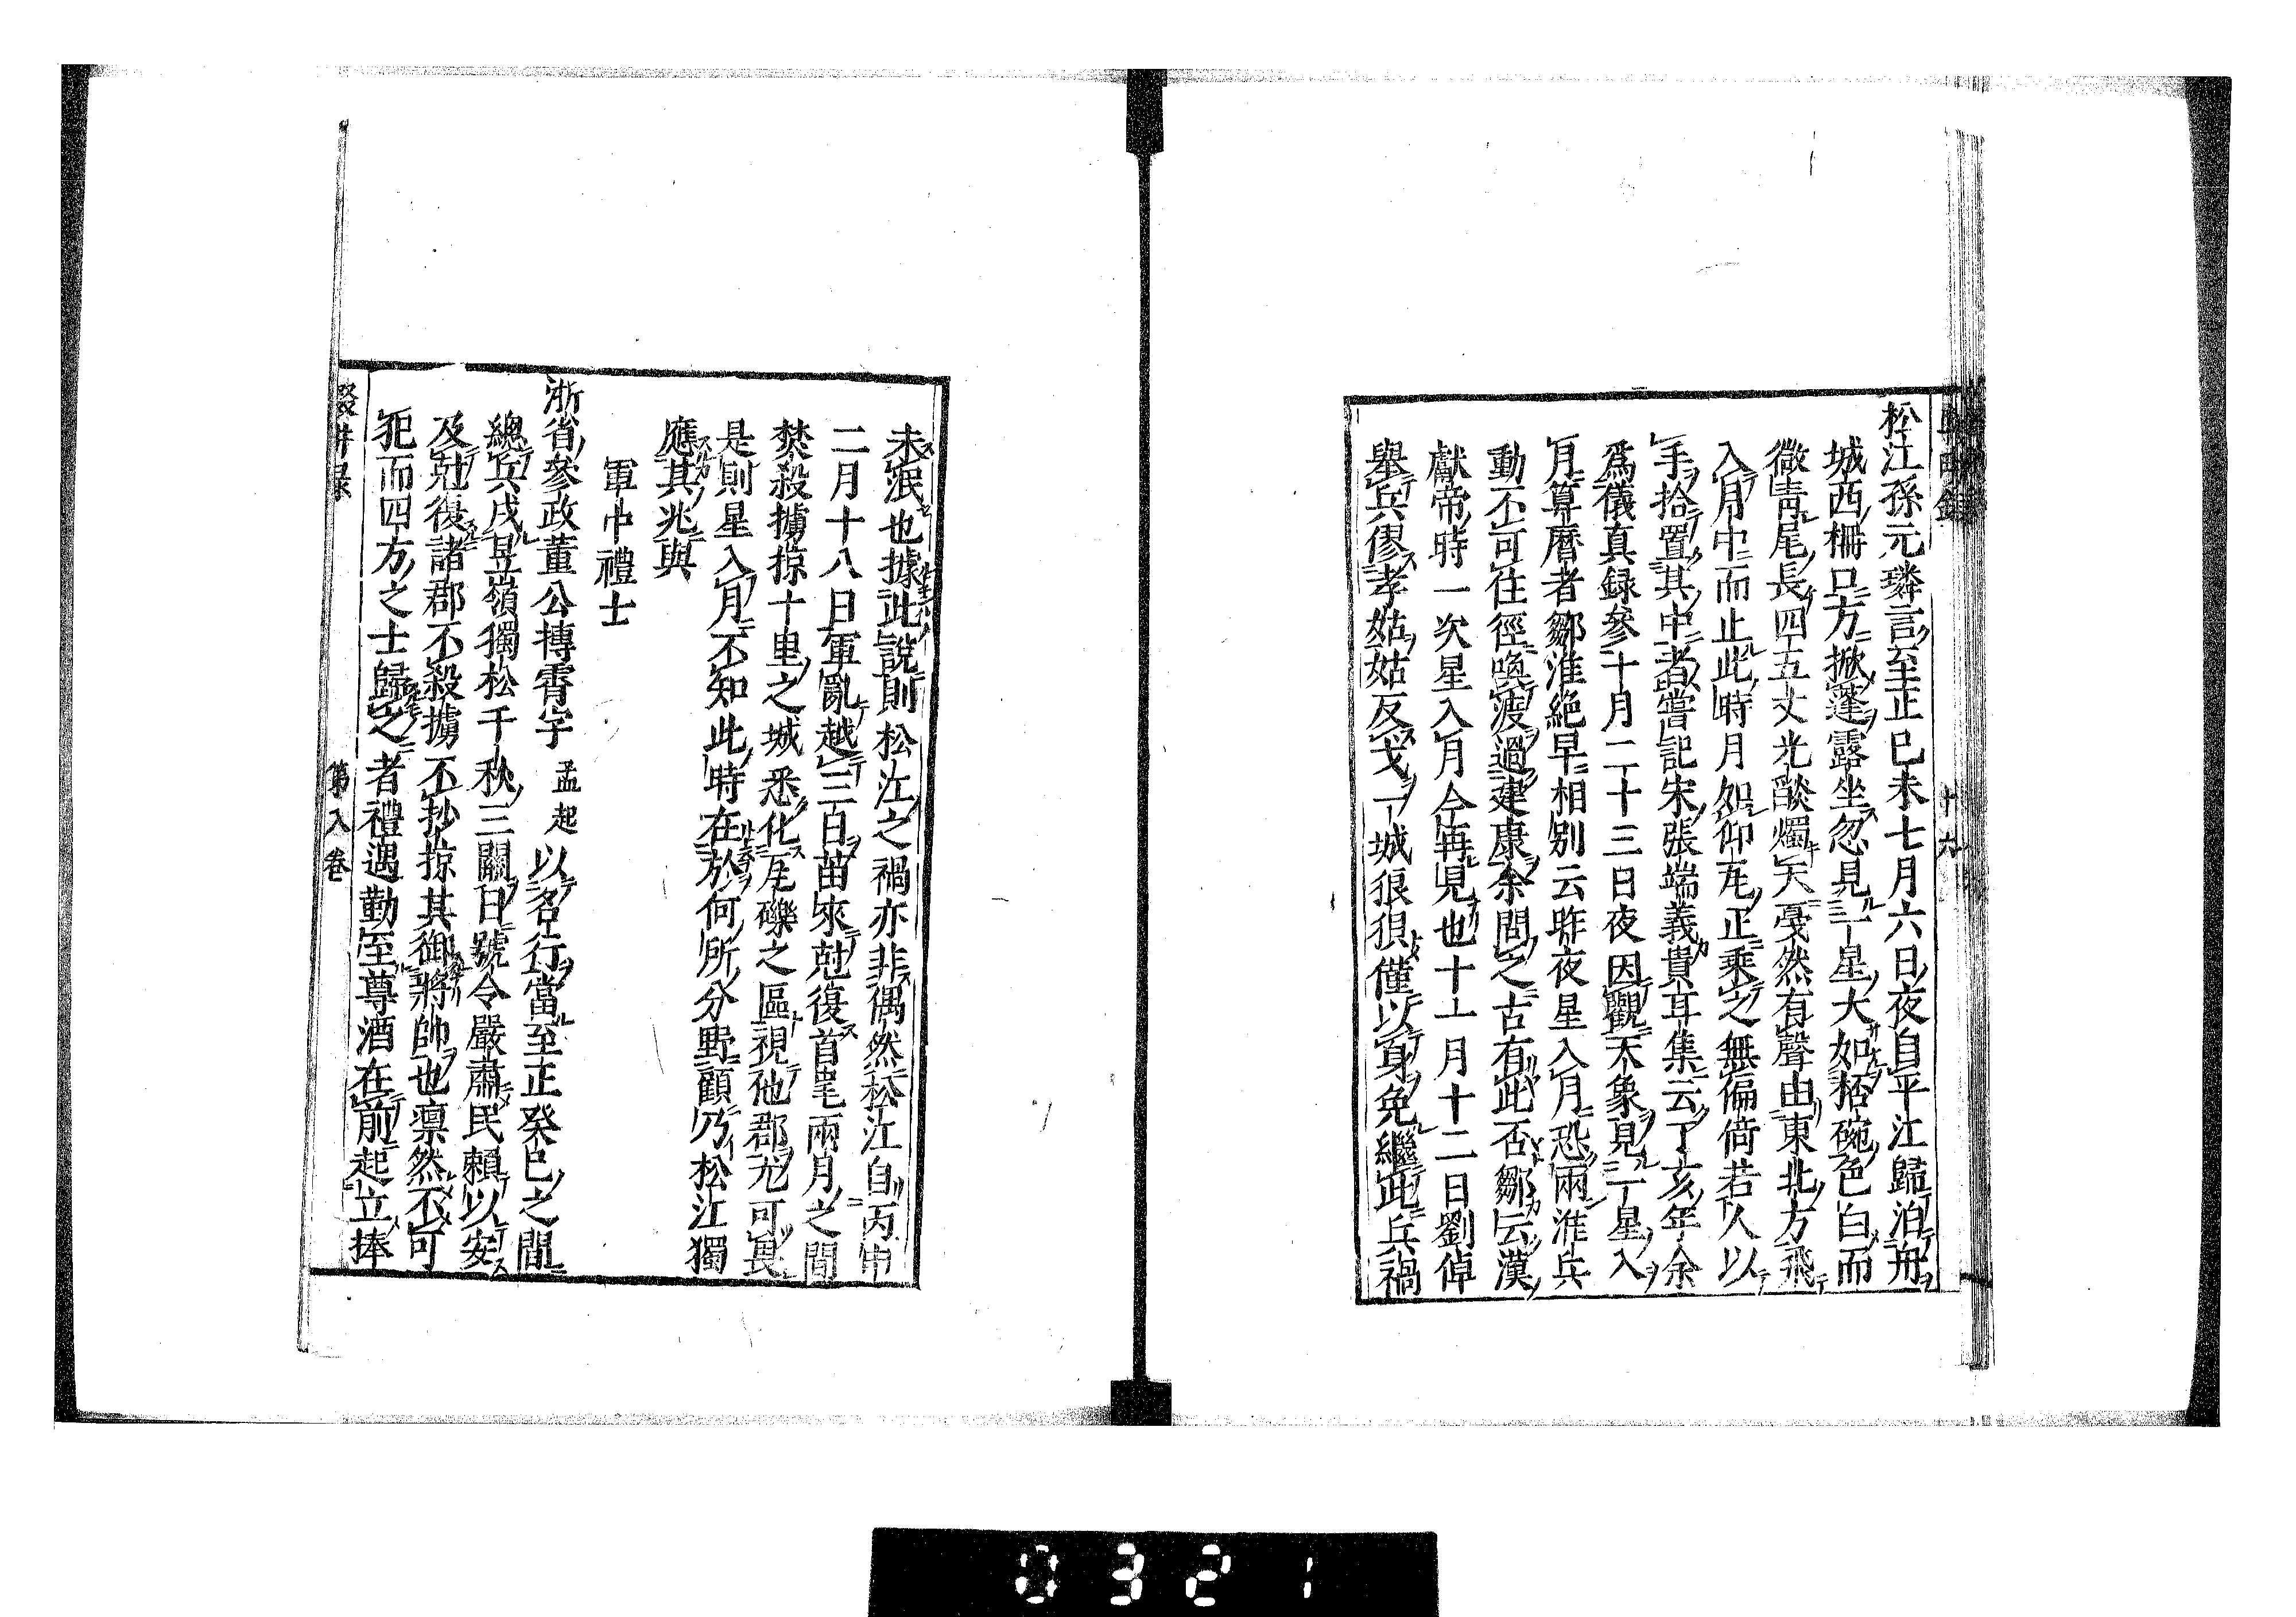 松江孫元璘言至正巳未七月六日夜自平江歸泊舟
城西柵口方掀蓬露坐忽見一星大如栝碗色白而
微青尾長四五丈光燄燭天戞然有聲由東北方飛
入月中而止此時月如仰瓦正乘之無偏倚若人以
手拾置其中者嘗記宋張端義貴耳集云丁亥年余
爲儀真録參十月二十三日夜因觀天象見一星入
月算曆者鄒淮絶早相别云昨夜星入月恐兩淮兵
動不可住徑喚渡過建康余問之古有此否鄒云漢
獻帝時一次星入月今再見也十一月十二日劉倬
舉兵僇李姑姑反戈一城狼狽僅以身免繼此兵禍
未泯也據此說則松江之禍亦非偶然松江自丙申
二月十八日軍亂越三日苗來尅復首尾兩月之間
焚殺擄掠十里之城悉化瓦礫之區視他郡尤可哀
是則星入月不知此時在於何所分野顧乃松江獨
應其兆與
軍中禮士
浙省參政董公摶霄字孟起以名行當至正癸巳之間
總兵戌昱嶺獨松千秋三關日號令嚴肅民賴以安
及尅復諸郡不殺擄不抄掠其御將帥也凛然不可
犯而四方之士歸之者禮遇勤至尊酒在前起立捧
輟畊录
第八卷
十六
0321